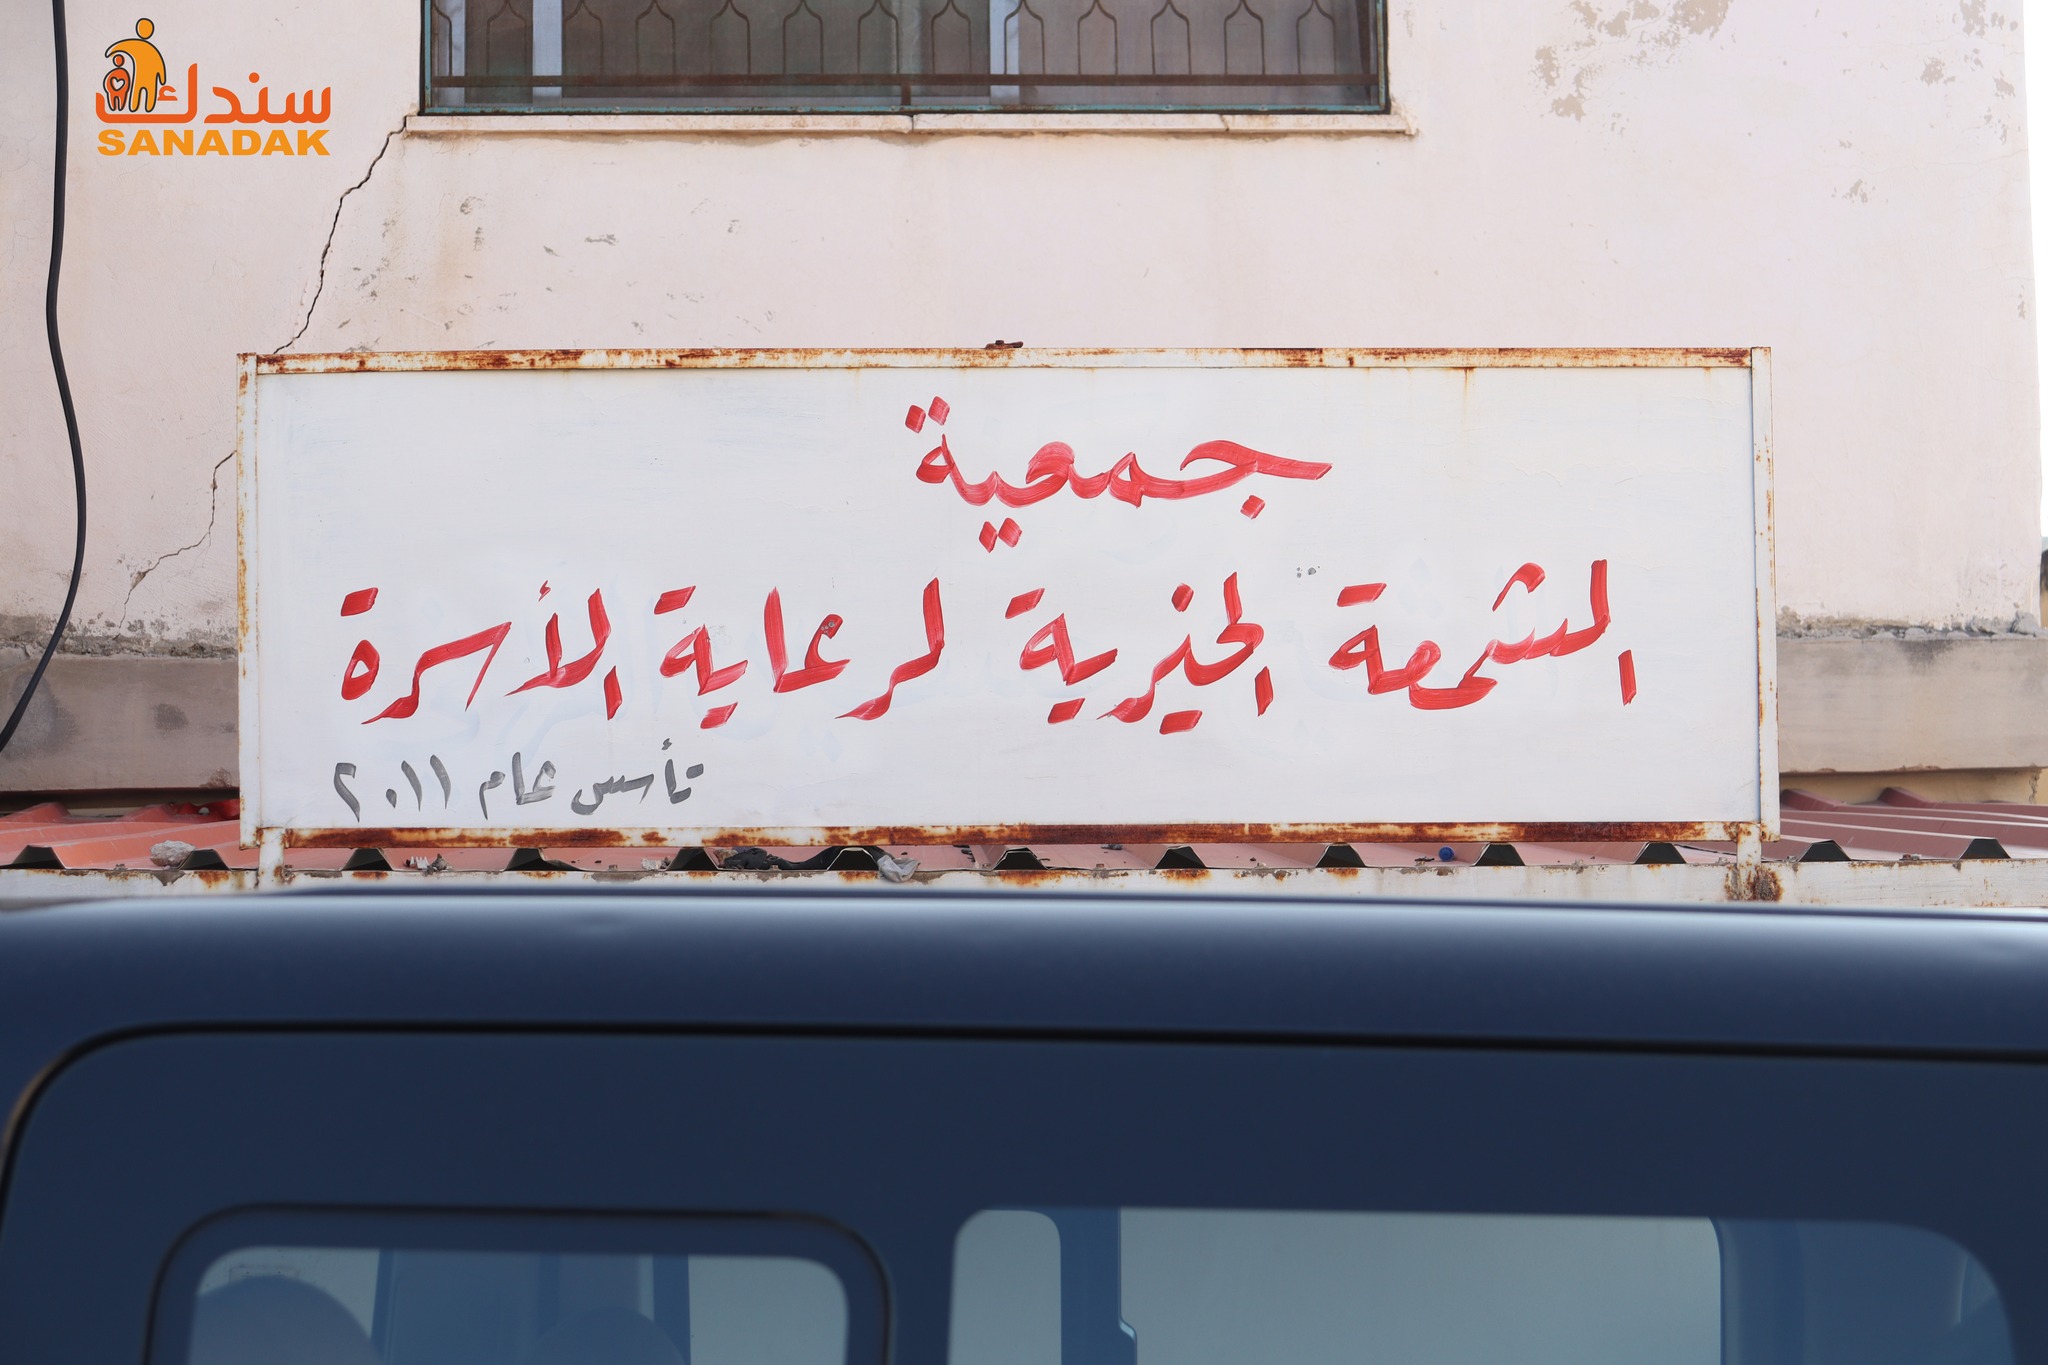 سندك
SANADAK
جمعية
الشمعة الخيرية لرعاية الأسرة
تأسس عام ٢٠١١